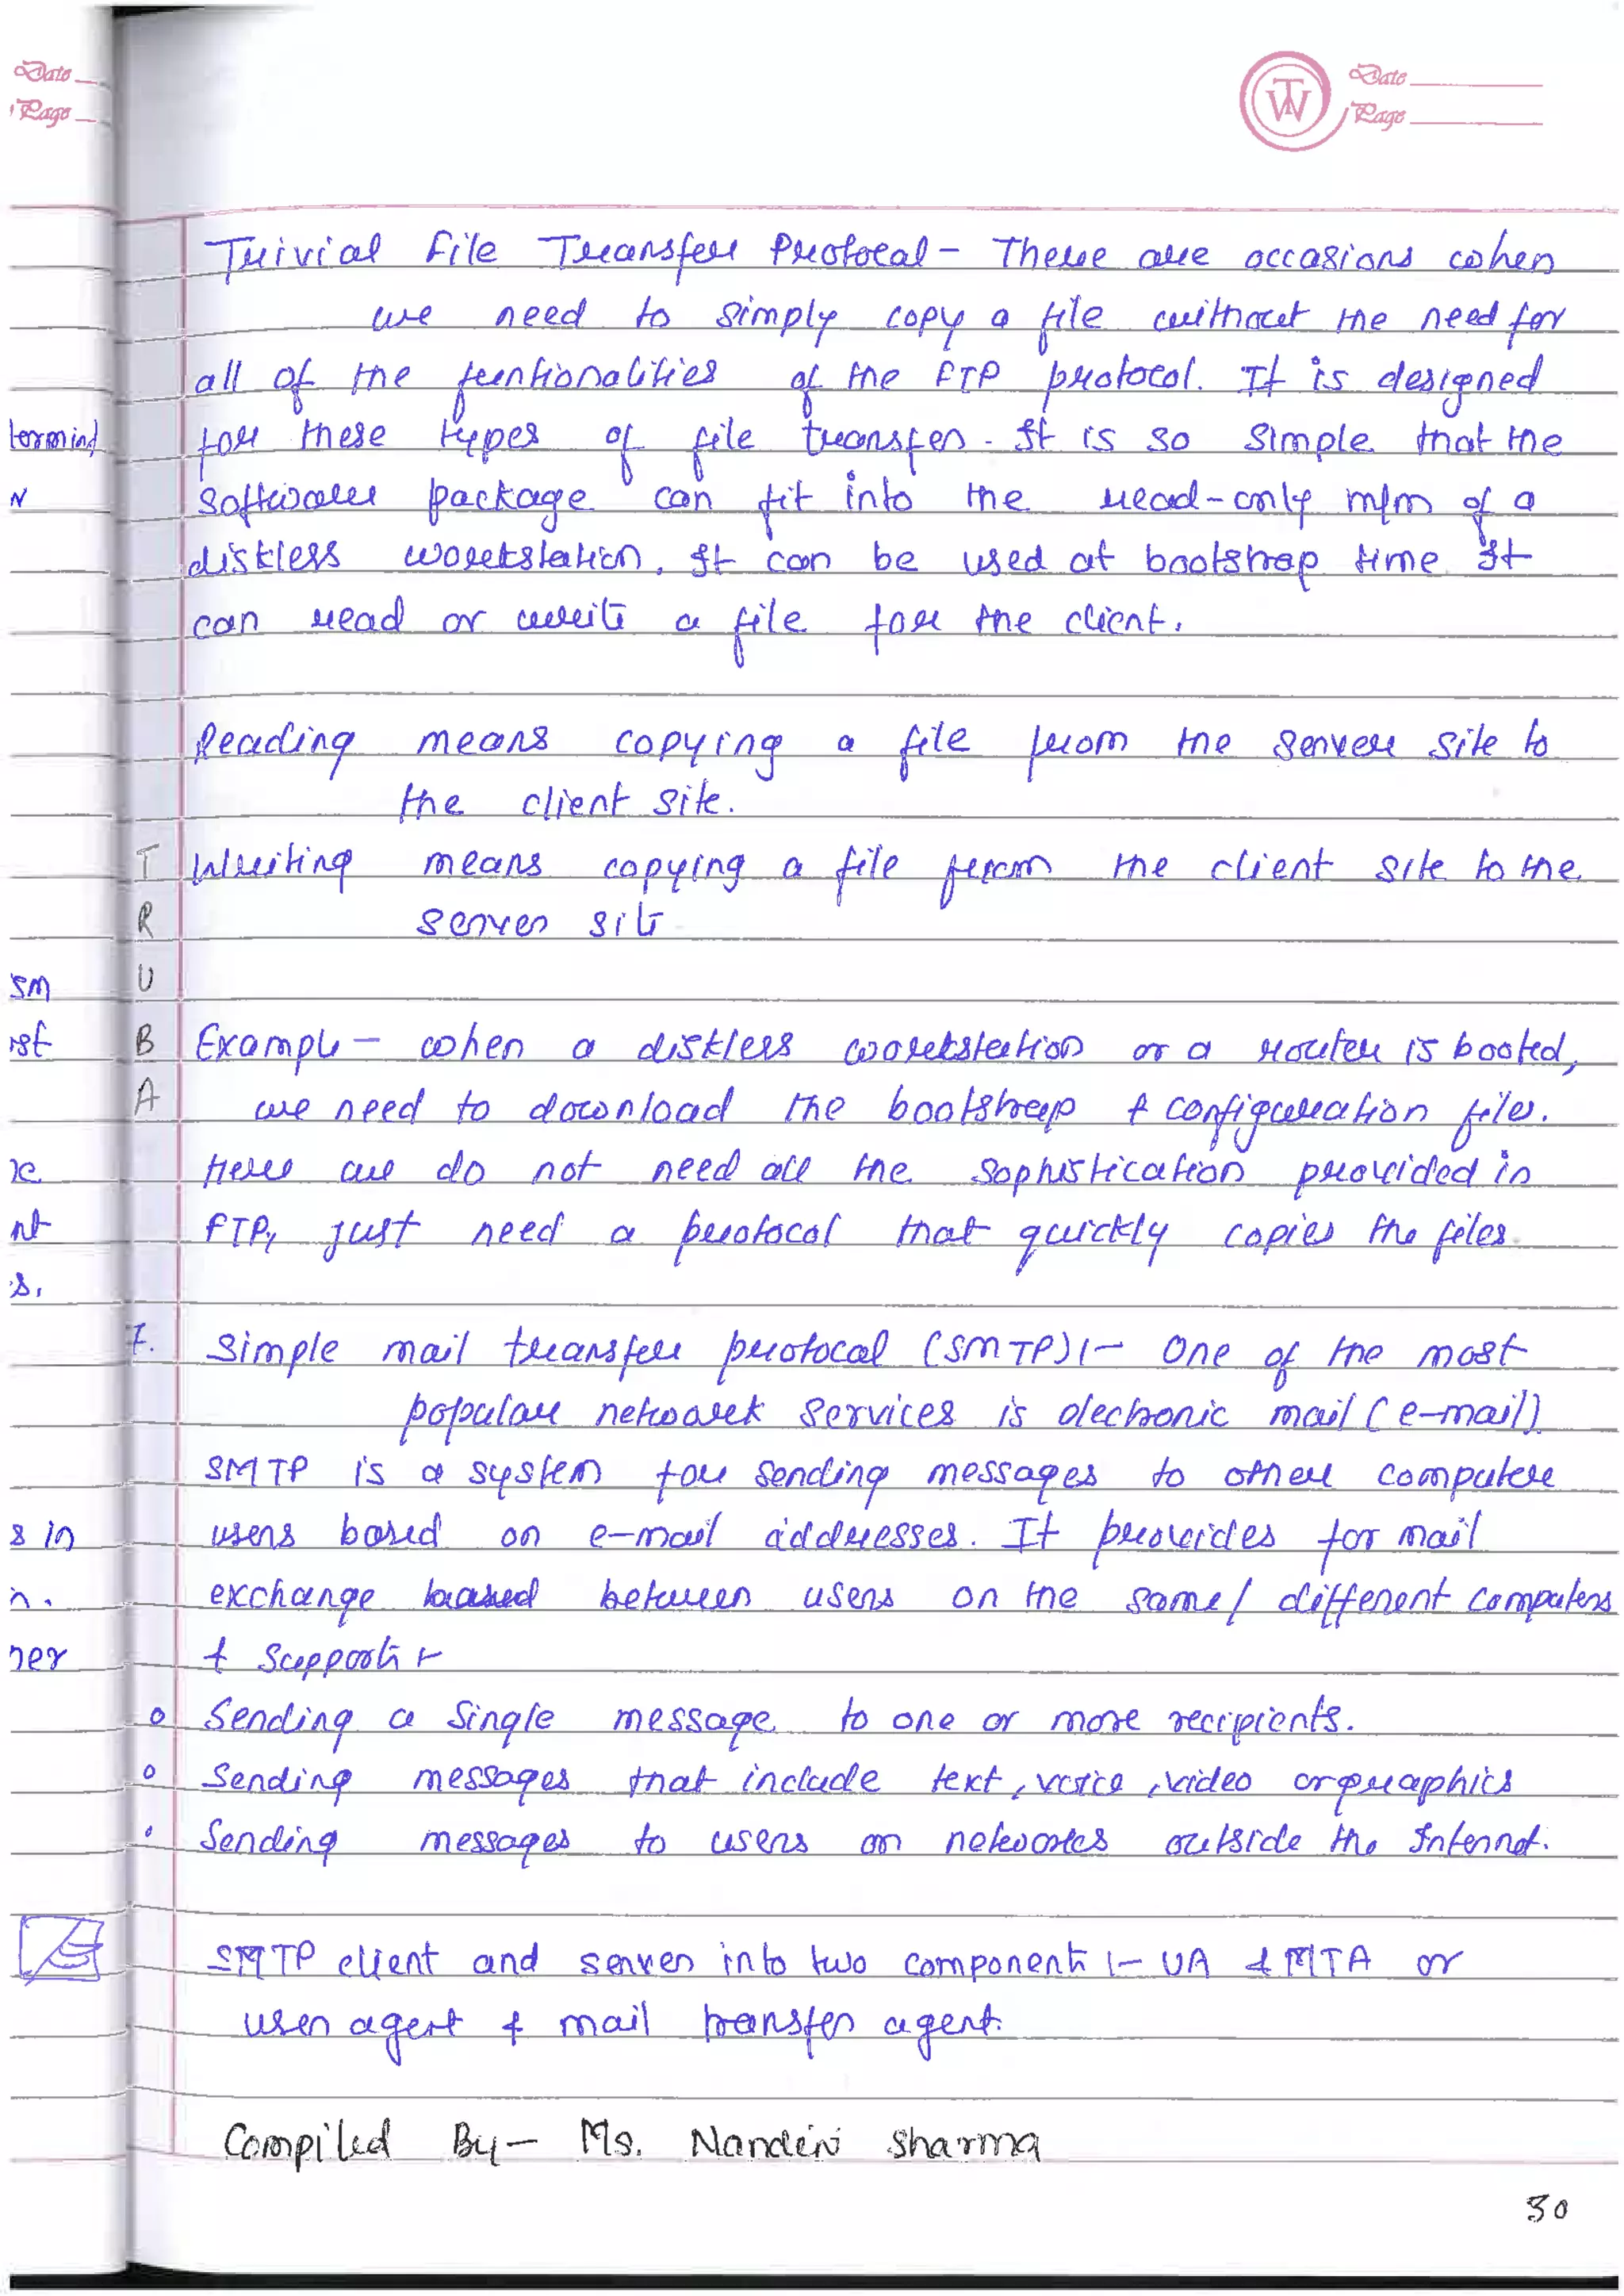 Date
Page
TW
Date
Page
Trivial File Transfer Protocal - There are occasions when
we need to simply copy a file without the need for
all of the funtionalities of the FTP protocol. It is designed
for these types of file transfer. It is so simple that the
software package can fit into the read-only m/m of a
diskless workstation. It can be used at bootstrap time It
can read or write a file for the client.
Reading means copying a file from the server site to
the client site.
Writing means copying a file from the client site to the
server site
T
R
U
B
A
Example - when a diskless workstation or a router is booted,
we need to download the bootstrap & configuration files.
Here we do not need all the sophistication provided in
FTP, just need a protocol that quickly copies the files.
7. Simple mail transfer protocal (SMTP):- One of the most
popular network services is electronic mail (e-mail).
SMTP is a system for sending messages to other computer
users based on e-mail addresses. It provides for mail
exchange between users on the same/ different computers
& supports:-
o Sending a single message to one or more recipients.
o Sending messages that include text, voice, video or graphics
o Sending messages to users on networks outside the Internet.
SMTP client and server into two components :- UA & MTA or
user agent & mail transfer agent.
Compiled By - Ms. Nandini Sharma
30
termind
N
sm
rst
nt
s.
s in
n.
her